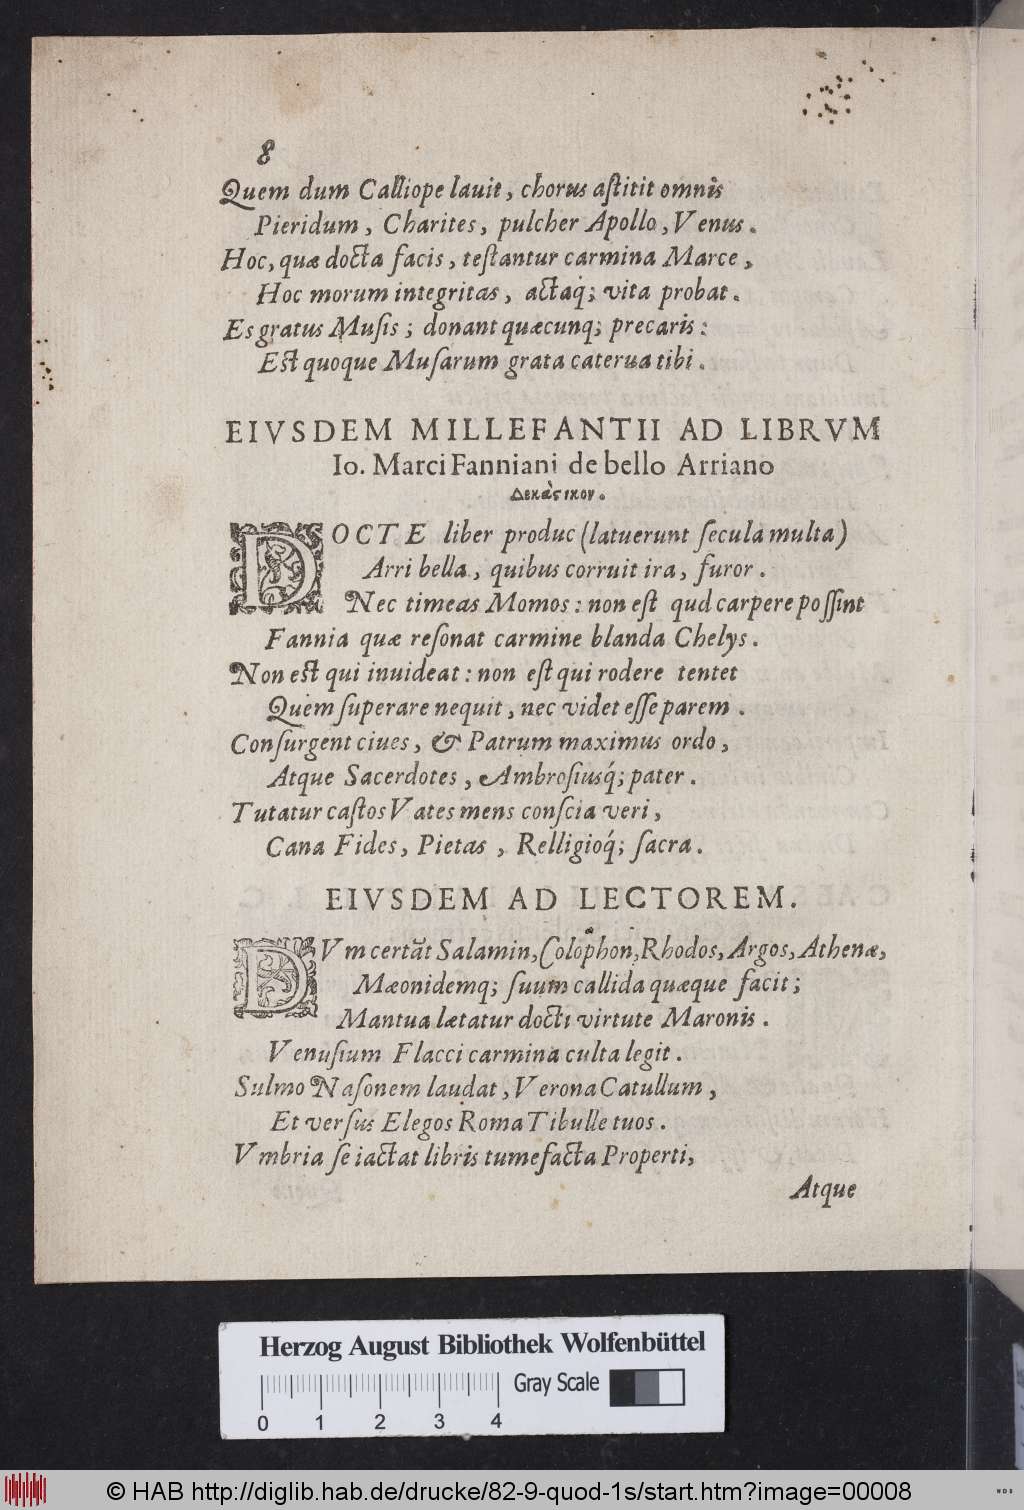 8
Quem dum Calliope lauit, chorus astitit omnis
Pieridum, Charites, pulcher Apollo, Venus.
Hoc, quæ docta facis, testantur carmina Marce,
Hoc morum integritas, actaq́; vita probat.
Es gratus Musis; donant quæcunq; precaris:
Est quoque Musarum grata caterua tibi.
EIVSDEM MILLEFANTII AD LIBRVM
Io. Marci Fanniani de bello Arriano
Δεκάςικον.
DOCTE liber produc (latuerunt secula multa)
Arri bella, quibus corruit ira, furor.
Nec timeas Momos: non est qud carpere possint
Fannia quæ resonat carmine blanda Chelys.
Non est qui inuideat: non est qui rodere tentet
Quem superare nequit, nec videt esse parem.
Consurgent ciues, & Patrum maximus ordo,
Atque Sacerdotes, Ambrosiusq́; pater.
Tutatur castos Vates mens conscia veri,
Cana Fides, Pietas, Relligioq́; sacra.
EIVSDEM AD LECTOREM.
DVm certāt Salamin, Colophon, Rhodos, Argos, Athenæ,
Mæonidemq; suum callida quæque facit;
Mantua lætatur docti virtute Maronis.
Venusium Flacci carmina culta legit.
Sulmo Nasonem laudat, Verona Catullum,
Et versus Elegos Roma Tibulle tuos.
Vmbria se iactat libris tumefacta Properti,
Atque
Herzog August Bibliothek Wolfenbüttel
Gray Scale
0 1 2 3 4
© HAB http://diglib.hab.de/drucke/82-9-quod-1s/start.htm?image=00008